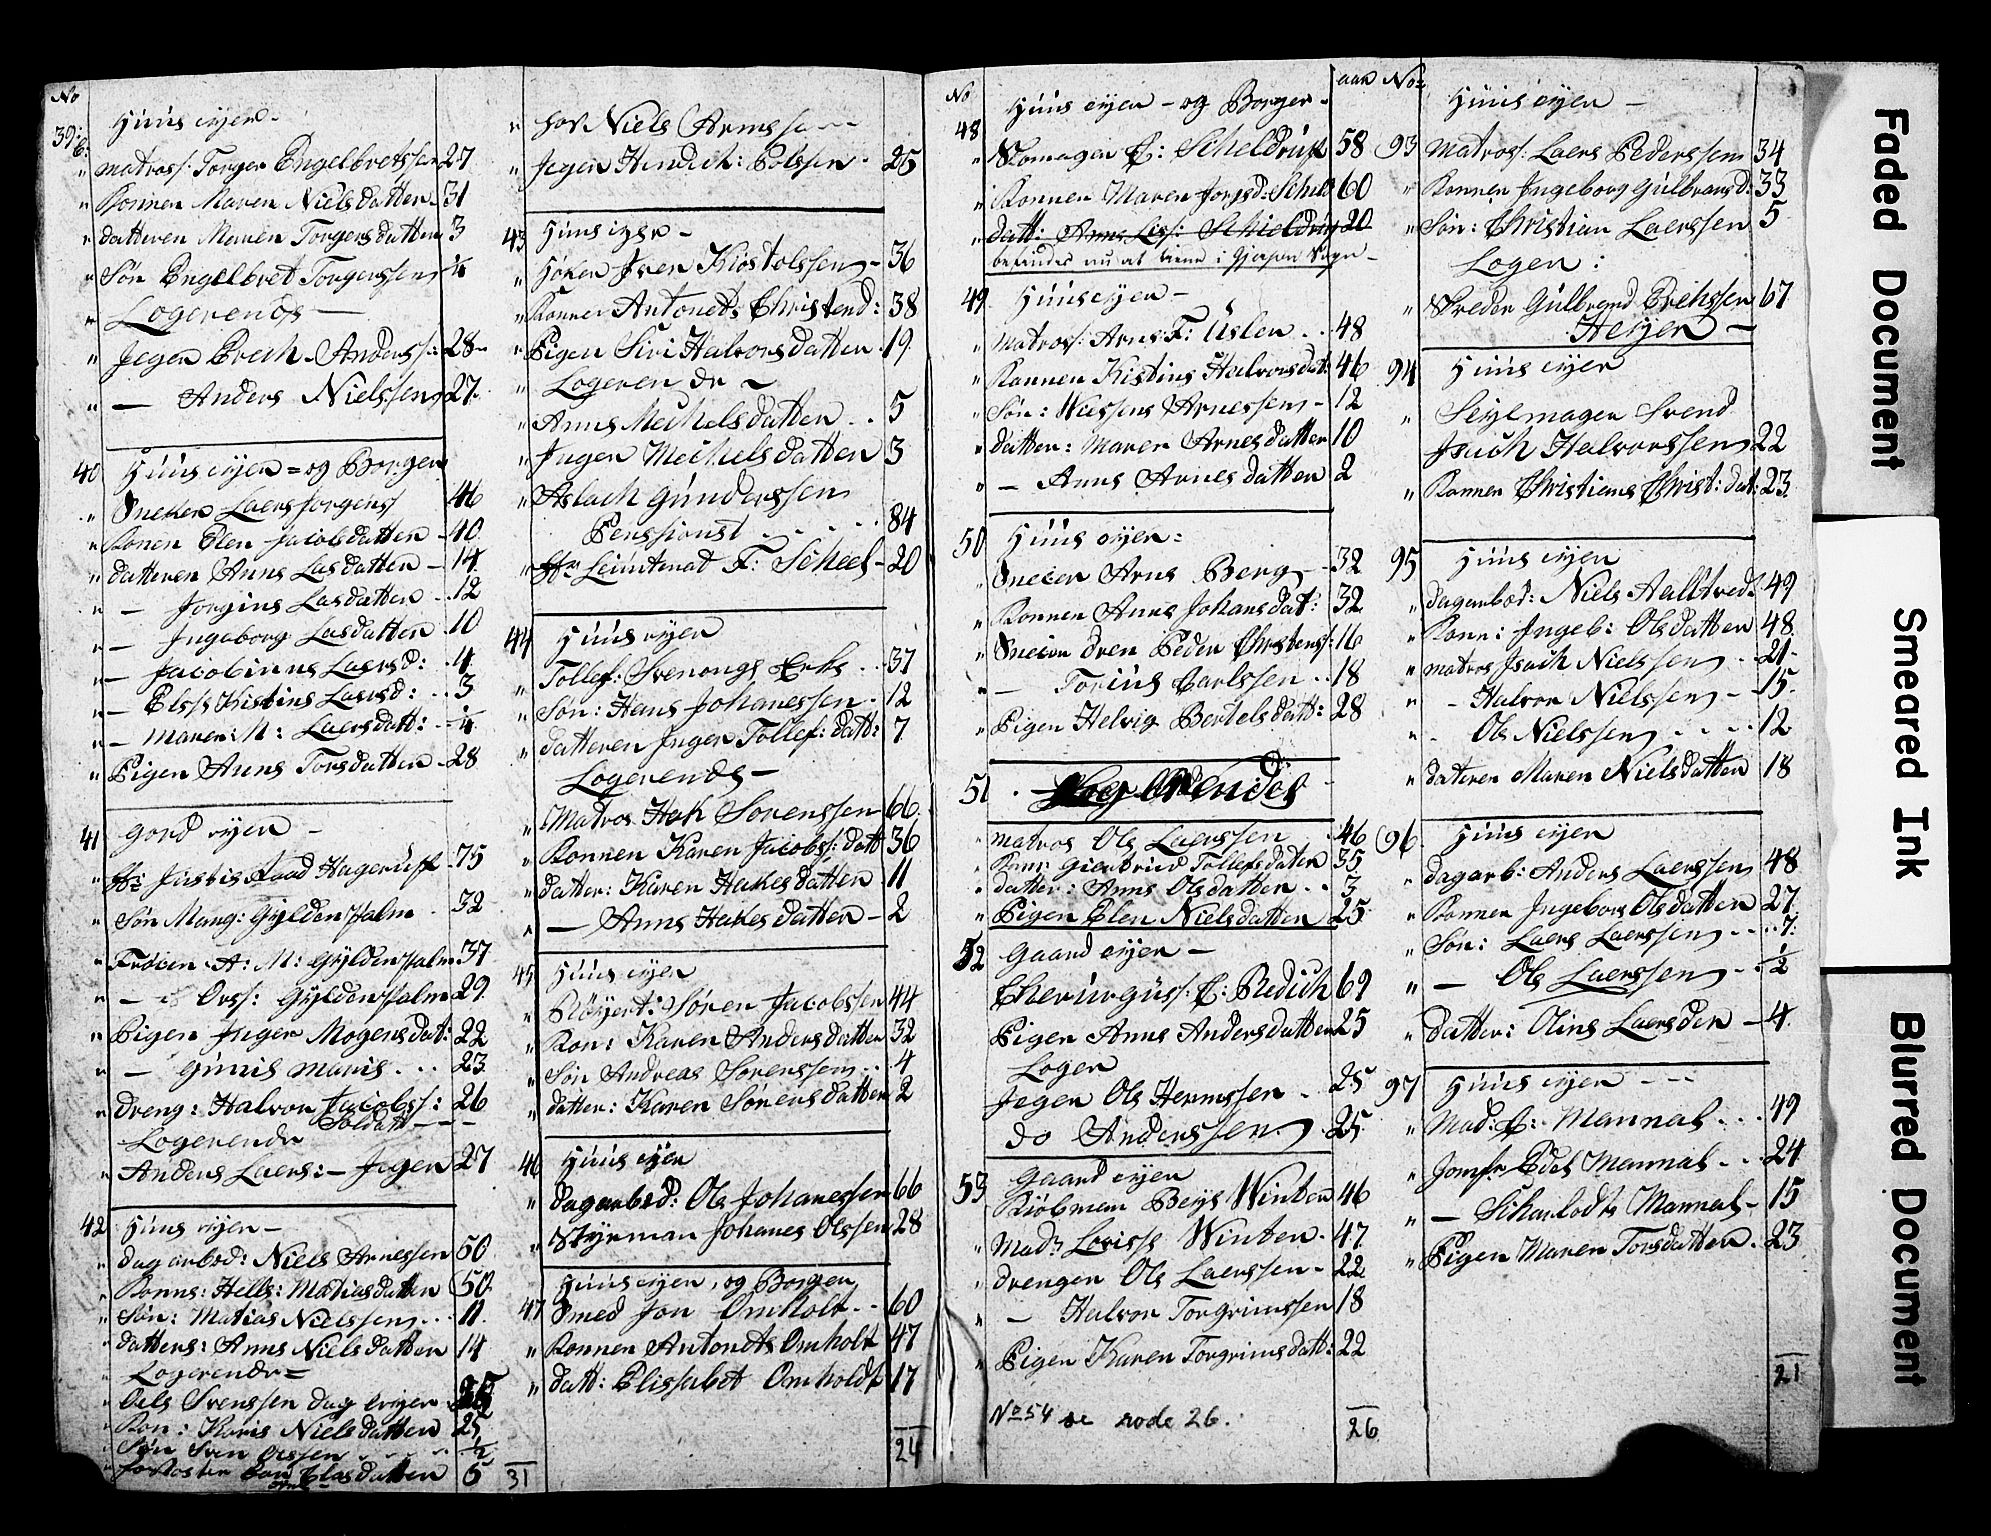 No
39: b: Huus eyer -
" matross: Torger Engelbretssen 27
" Konnen Maren Nielsdatter 31
" datteren Maren Torgersdatter 3
" Søn Engelbret Torgerssen 1/4
" Logerende -
" Jeger Erich Anderss: 28
" — Anders Nielssen 27
40 Huus eyer = og Borger
" Sneker Laers Jorgens 46
" Konen Elen Jacobsdatter 40
" datteren Anne Lasdatter - 14
" — Jorgine Lasdatter 12
" — Ingeborg Lasdatter 10
" — Jacobinne Laersd: 4
" — Elsse Kistine Laersd: 3
" — Maren: M: Laersdatt: 1/4
" Pigen Anne Torsdatter 28
41 gord eyer -
" Hr Justis Raad Hagerup 75
" Søn Mang: Gyldenpalm 32
" Frøken A: M: Gyldenpalm 37
" — Gyldenpalm 29
" Pigen Inger Mogensdat: 22
" — Gunil Marie 23
" Dreng: Halvor Jacobss: 26
Soldatt ---
Logerende
" Anders Laers: - Jeger 27
42 Huus eyer -
" Dagarbed: Niels Arnessen 50
" Konne: Helle: Matiasdatter 50
" Søn: Matias Nielssen 11
" dattere: Anne Nielsdatter 14
" Logerende =
Oels Svenssen dag
" Kon: Karis Nielsdatter 25
" Søn Sven Olssen 1/2
" Elasdatter 5
31
" Niels Arnessen
" Jeger Hendich: Polssen 25
43 Huus eyer -
" Høker Iver Kiøstolssen - 36
" Konnen Antonete Christend: 38
" Pigen Siri Halvorsdatter 19
" Logerende -
" Anne Michelsdatter 5
" Inger Michelsdatter 3
" Aslach Gunderssen
Penssionst 84
" Hr Leiuttenat F: Scheel - 20
44 Huus eyer
" Tollef: Svenongs Enke 37
" Søn: Hans Johanessen 12
" datteren Inger Tollef: datt: 7
Logerende -
" Matros Hak Sorenssen 66
" Konnen Karen Jacobs: datt 36
" datter: Karen Hakesdatter 11
" — Anne Hakesdatter - 2
45 Huus eyer
" Søren Jacobssen 44
" Kon: Karen Andersdatter 32
" Søn Andreas Sorenssen 4
" datter: Karen Sørensdatter 2
46 Huus eyer
" Dagarbed: Ole Johanessen 66
" Styrman Johanes Olssen 28
Huus eyer, og Borger
47 Smed Jon Omholt 60
" Konnen Antonete Omholt 47
" datt: Elissabet Omholdt 17
24
No aar
48 Huus eyer - og Borger
" Skomager C: Scheldrup 58
" Konnen Maren Jorgsd: Schel 60
" datt: Anne Liss: Schieldrup 20
befindes nu at tiene i Gjerpen Sogn -
49 Huus eyer -
" matros: Arne F: Uslen 48
" Konnen Kistine Halvorsdat: 46
" Søn: Arnessen - 12
" datter: Maren Arnesdatter 10
" — Anne Arnesdatter 2
50 Huus eyer:
" Sneker Arne Berg - 32
" Konnen Anne Johansdat: 32
" Sneker dren Peder Christens: 16
" — Torius Carlssen 18
" Pigen Helvig Bertelsdatt: 28
51 Logerendes
" matros Ole Laerssen 46
" Kon: Giertrud Tollefsdatter 35
" datter: Anne Olsdatter 3
" Pigen Elen Nielsdatter 25
52 Gaard eyer -
Cherurguss: C: Redich 69
Pigen Anne Andersdatter 25
Loger
Jeger Ole Hermssen 25
do Anderssen 25
53 Gaard eyer
Kiobman Boye Winter 46
" Mad: Lovisse Winter 47
" Drengen Ole Laerssen - 22
" — Halvor Torgrimssen 18
" Pigen Karen Torgrimsdatt: 22
No 54 se rode 26.
26
No:
Huus eyer -
93 Matros: Laers Pederssen 34
" Konnen Ingeborg Gulbransd: 33
" Søn: Christian Laerssen 5
Loger:
" Skreder Gulbrand Erichssen 67
Heyer -
94 Huus eyer
" Seylmager Svend
Isach Halvorssen 22
" Konnen Christiane Christ: dat: 23
95 Huus eyer
" Dagarbed: Niels Halstved: 49
" Konn: Ingeb: Olsdatter 48
" matros Isach Nielssen 21
" - Halvor Nielssen - 15
" - Ole Nielssen 12
" dateren Maren Nielsdatter 18
96 Huus eyer
" Dagarb: Anders Laerssen 48
" Konnen Ingebor Olsdatter 27
" Søn: Laers Laerssen 7
" — Ole Laerssen 1/2
" datter: Oline Laersden - 4
97 Huus eyer ---
" Mad: C: Mannal 49
" Jomfr: Edel Mannal 24
" — Scharlodte Mannal - 15
" Pigen Maren Torsdatter 23
21
Faded Document
Smeared Ink
Blurred Document